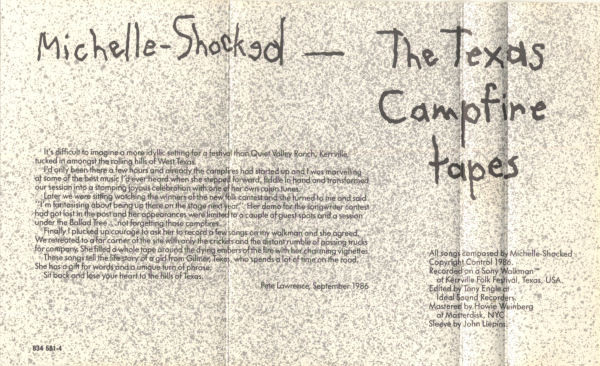 Michelle-Shocked — The Texas
Campfire
tapes
It's difficult to imagine a more idyllic setting for a festival than Quiet Valley Ranch, Kerrville,
tucked in amongst the rolling hills of West Texas.
I'd only been there a few hours and already the campfires had started up and I was marvelling
at some of the best music I'd ever heard when she stepped forward, fiddle in hand and transformed
our session into a stomping joyous celebration with one of her own cajun tunes.
Later we were sitting watching the winners of the new folk contest and she turned to me and said
"I'm fantasising about being up there on the stage next year". Her demo for the songwriter contest
had got lost in the post and her appearances were limited to a couple of guest spots and a session
under the Ballad Tree ... not forgetting those campfires.
Finally I plucked up courage to ask her to record a few songs on my walkman and she agreed.
We retreated to a far corner of the site with only the crickets and the distant rumble of passing trucks
for company. She filled a whole tape around the dying embers of the fire with her charming vignettes.
These songs tell the life story of a girl from Gilmer, Texas, who spends a lot of time on the road.
She has a gift for words and a unique turn of phrase.
Sit back and lose your heart to the hills of Texas.
Pete Lawrence, September 1986
All songs composed by Michelle-Shocked
Copyright Control 1986.
Recorded on a Sony Walkman™
at Kerrville Folk Festival, Texas, USA.
Edited by Tony Engle at
Ideal Sound Recorders.
Mastered by Howie Weinberg
at Masterdisk, NYC
Sleeve by John Liepins.
834 581-4